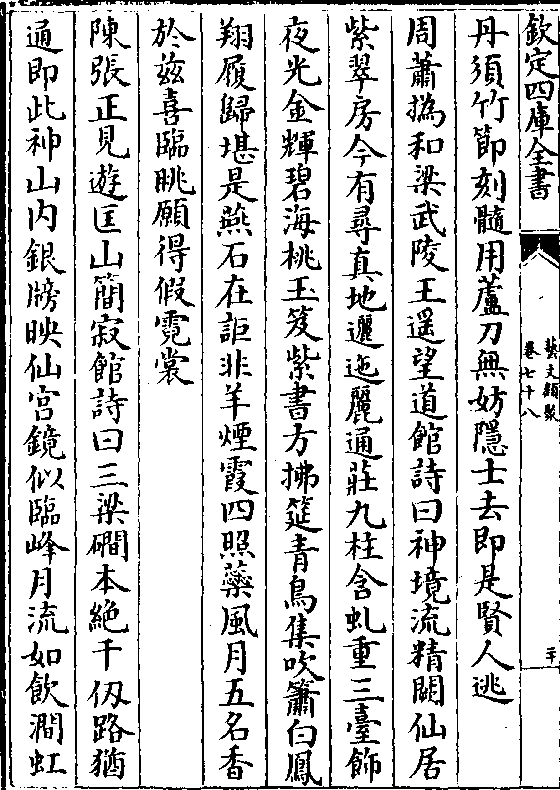 欽定四庫全書
藝文類聚
卷七十八
二十
丹須竹節刻髓用蘆刀無妨隱士去即是賢人逃
周蕭撝和梁武陵王遥望道館詩曰神境流精闕仙居
紫翠房今有尋真地邐迤麗通莊九柱含虬重三臺飾
夜光金輝碧海桃玉笈紫書方拂筵青鳥集吹簫白鳳
翔履歸堪是燕石在詎非羊煙霞四照蘂風月五名香
於兹喜臨眺願得假霓裳
陳張正見遊匡山簡寂館詩曰三梁磵本絶千仭路猶
通即此神山内銀牓映仙宫鏡似臨峰月流如飲澗虹